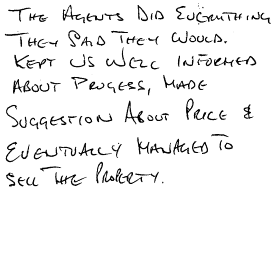 THE AGENTS DID EVERYTHING
THEY SAID THEY WOULD.
KEPT US WELL INFORMED
ABOUT PROGESS, MADE
SUGGESTION ABOUT PRICE &
EVENTUALLY MANAGED TO
SELL THE PROPERTY.